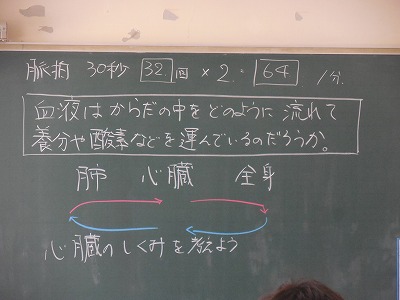 脈拍 30秒 32回 × 2 = 64 /分
血液はからだの中をどのように流れて
養分や酸素などを運んでいるのだろうか。
肺 心臓 全身
心臓のしくみを考えよう